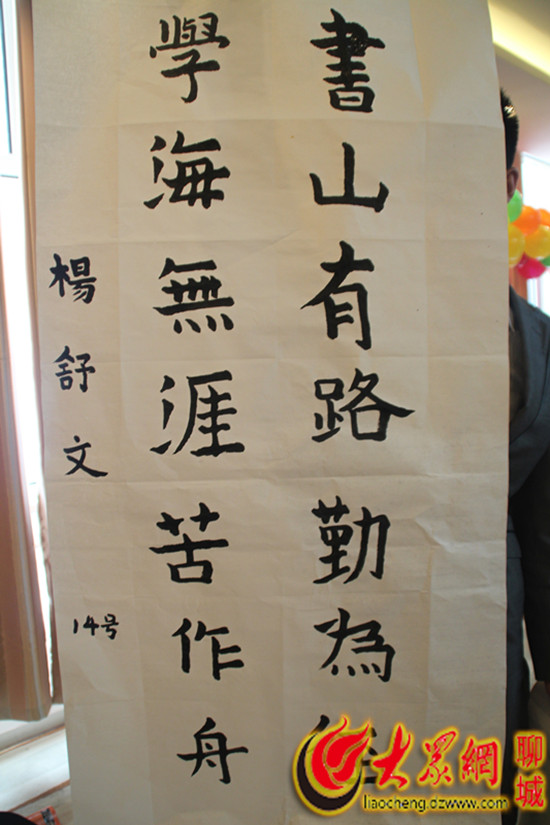 書山有路勤為径
學海無涯苦作舟
楊舒文
14号
大眾網
聊城
liaocheng.dzwww.com